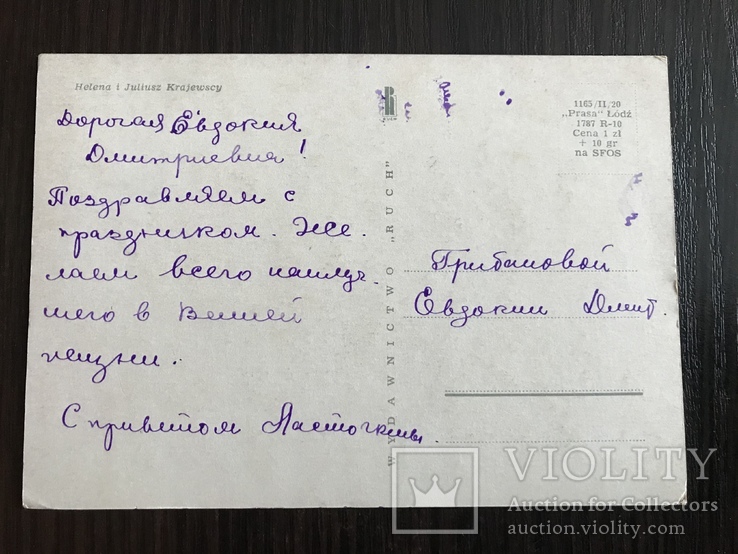 Helena i Juliusz Krajewscy
Дорогая Евдокия
Дмитриевна!
Поздравляем с
праздником. Же
лаем всего наилуч
шего в Вашей
жизни.
С приветом Ласточкины
WYDAWNICTWO „RUCH"
R
RUCH
1165/II/20
„Prasa" Łódź
1787 R-10
Cena 1 zł
+ 10 gr
na SFOS
Грибановой
Евдокии Дмит.
VIOLITY
Auction for Collectors
auction.violity.com